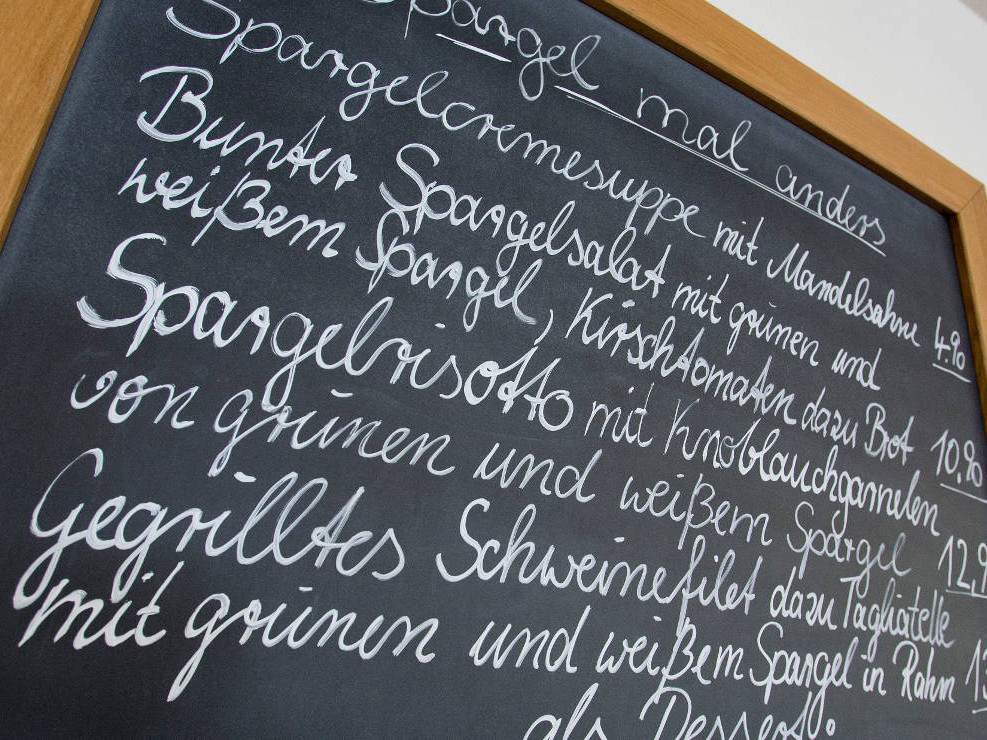 Spargel mal anders
Spargelcremesuppe mit Mandelsahne 4.90
Bunter Spargelsalat mit grünen und
weißem Spargel, Kirschtomaten dazu Brot 10.90
Spargelrisotto mit Knoblauchgarnelen
von grünen und weißem Spargel 12,9
Gegrilltes Schweinefilet dazu Tagliatelle
mit grünen und weißem Spargel in Rahm 13
als Dessert: